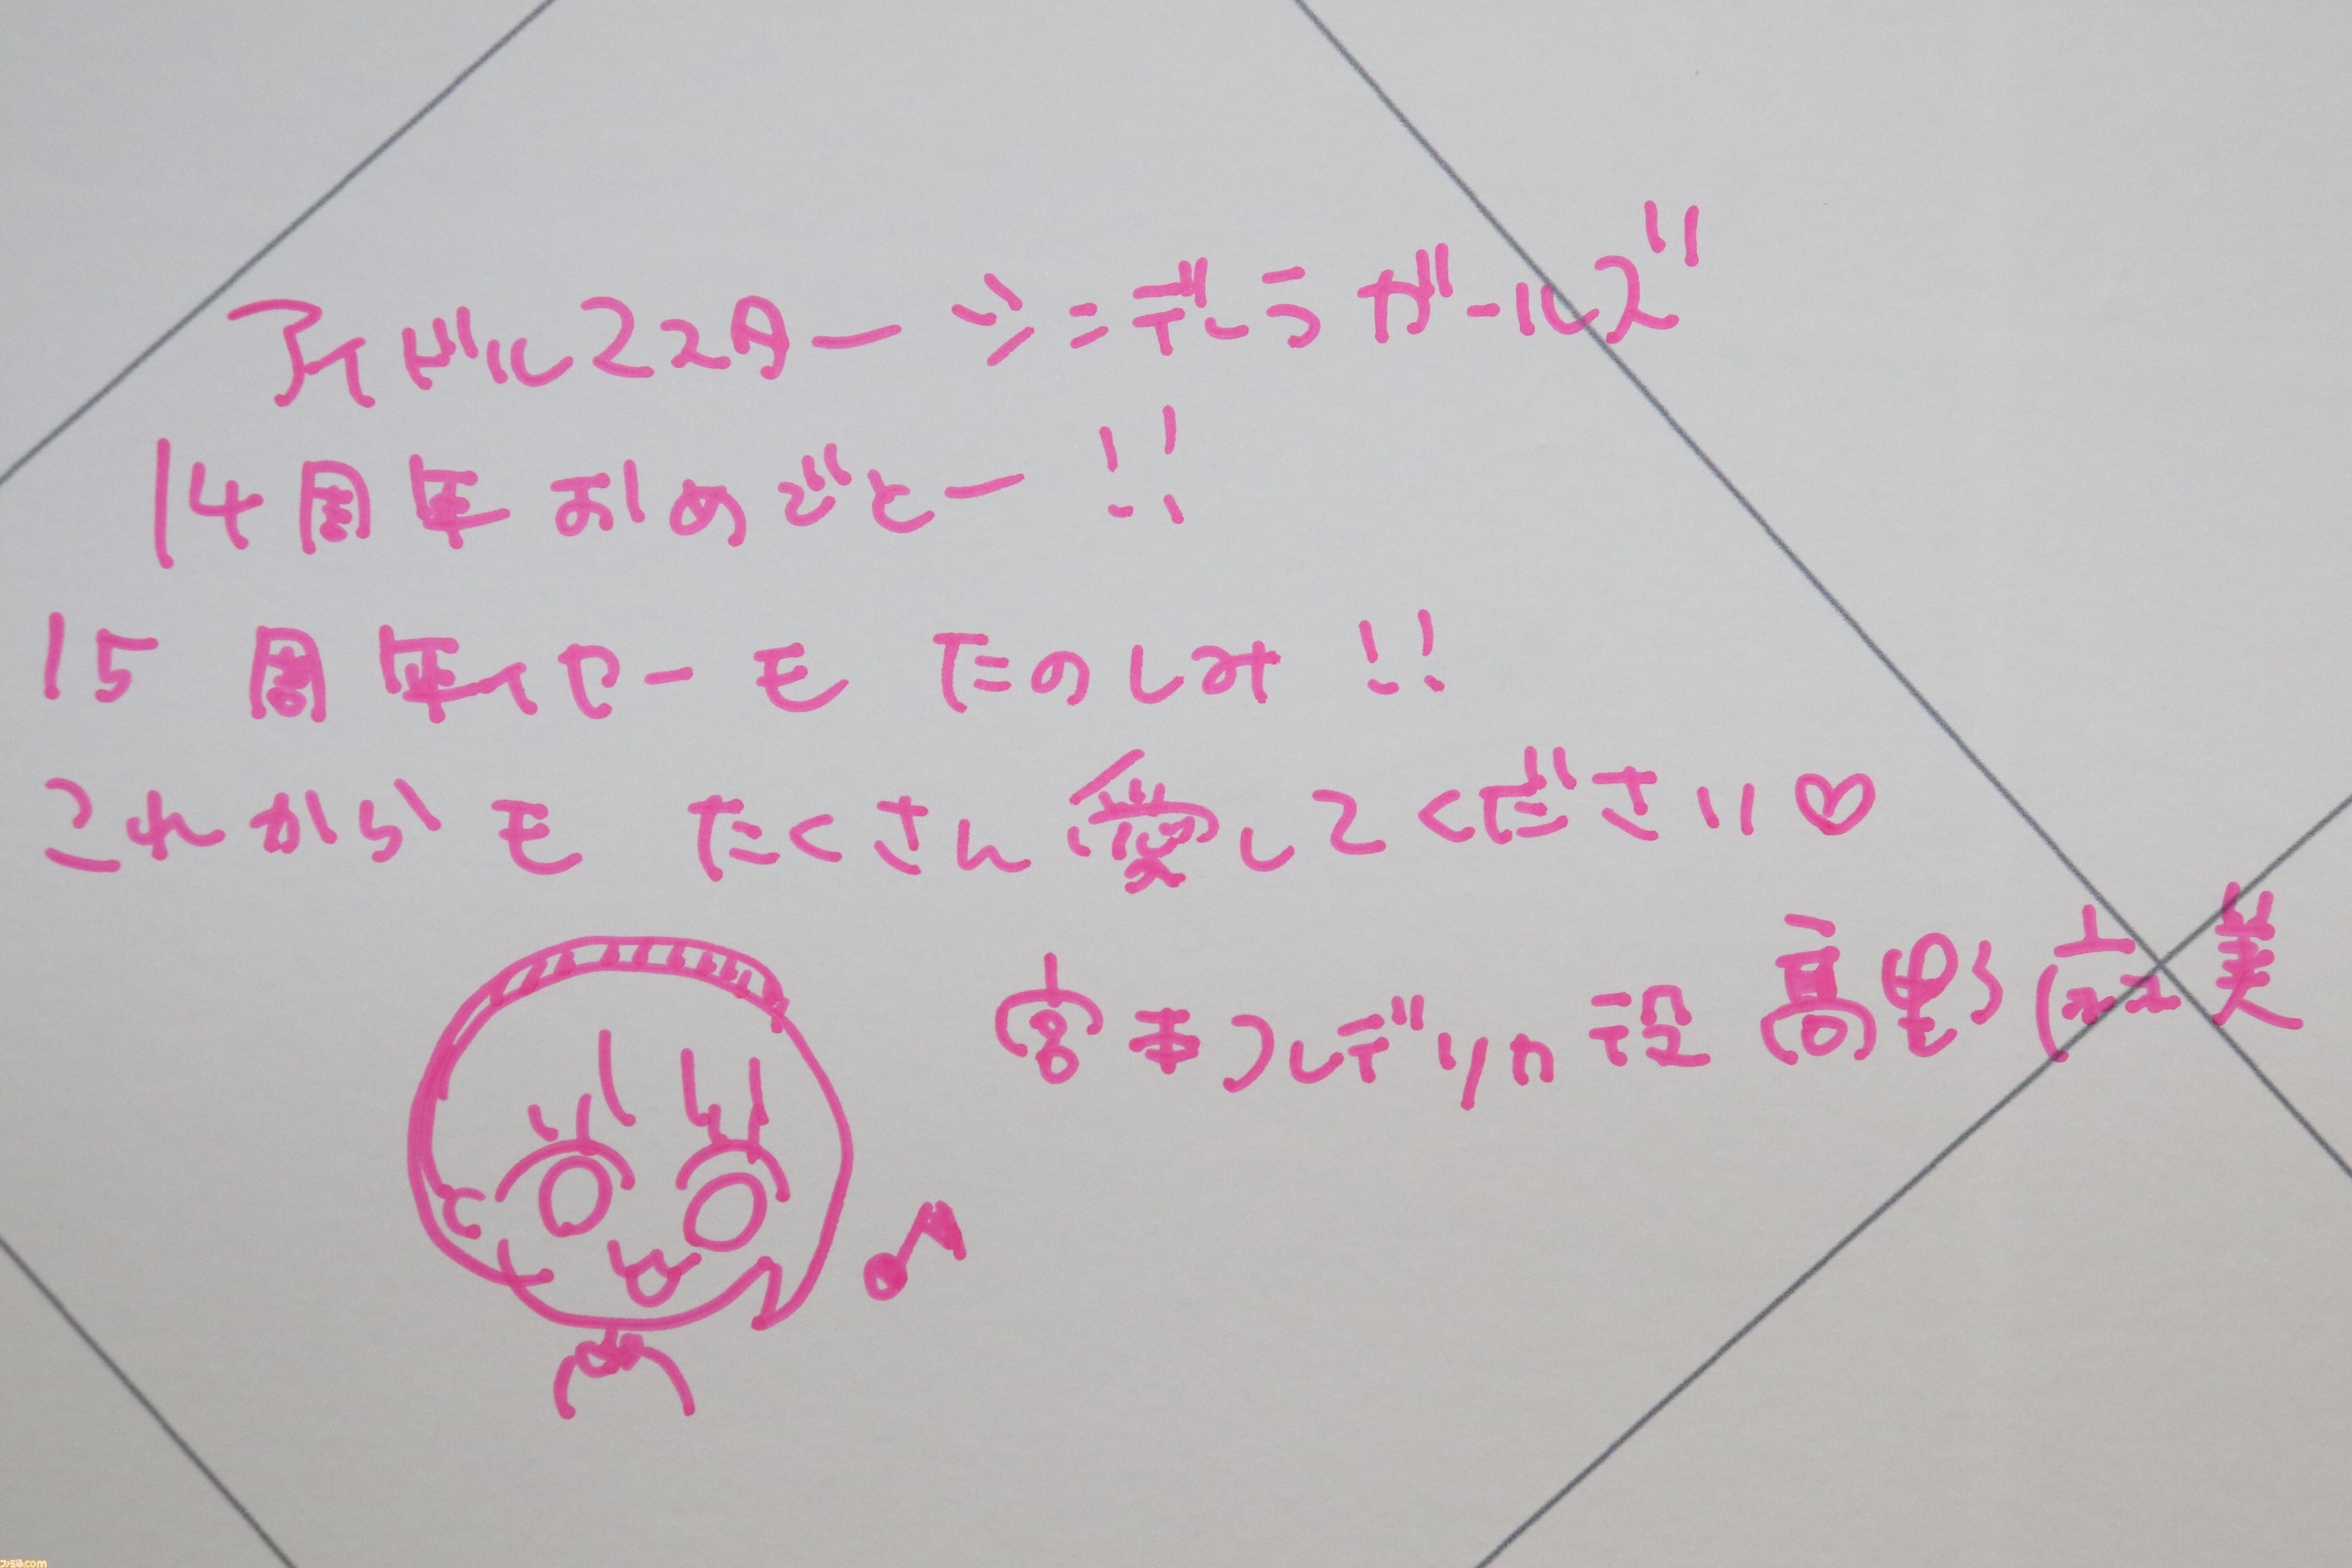 アイドルマスターシンデレラガールズ
14周年おめでとー!!
15周年イヤーもたのしみ!!
これからもたくさん愛してください♡
宮本フレデリカ役 高野麻美
ファミ通.com